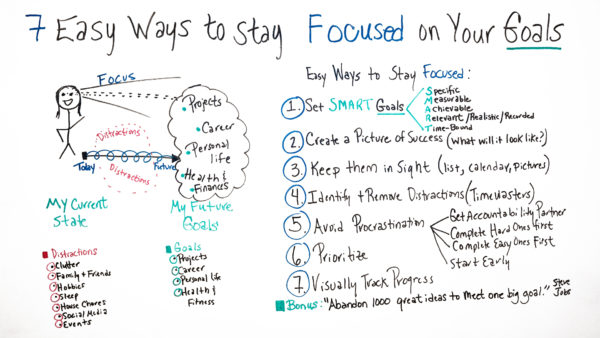 7 Easy Ways to Stay Focused on Your Goals
Focus
Projects
Career
Personal
life
Health &
Finances
Distractions
Distractions
Today
Future
My Current
State
My Future
Goals
Distractions
Clutter
Family + Friends
Hobbies
Sleep
House Chores
Social Media
Events
Goals
Projects
Career
Personal life
Health &
Fitness
Easy Ways to Stay Focused:
1. Set SMART Goals
Specific
Measurable
Achievable
Relevant/Realistic/Recorded
Time-Bound
2. Create a Picture of Success (What will it look like?)
3. Keep them in Sight (list, calendar, pictures)
4. Identify + Remove Distractions/Timewasters
5. Avoid Procrastination
Get Accountability Partner
Complete Hard Ones First
Complete Easy Ones First
Start Early
6. Prioritize
7. Visually Track Progress
Bonus: "Abandon 1000 great ideas to meet one big goal." Steve
Jobs